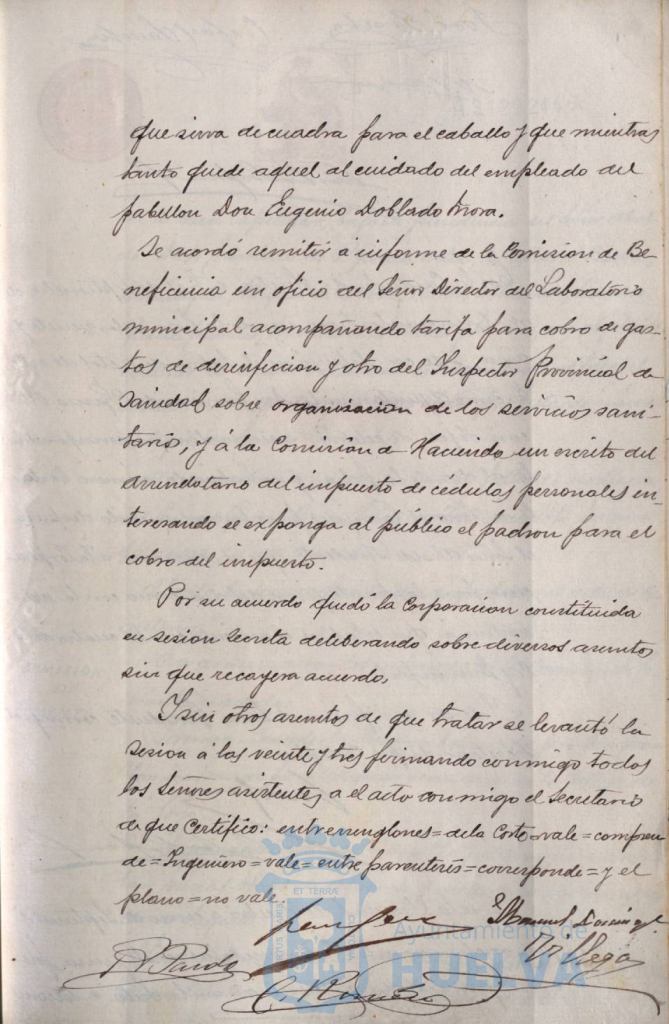 que sirva de cuadra para el caballo y que mientras
tanto quede aquel al cuidado del empleado del
pabellon Don Eugenio Doblado Mora.
Se acordó remitir á informe de la Comision de Be-
neficencia un oficio del Señor Director del Laboratorio
municipal acompañando tarifa para cobro de gas-
tos de desinfeccion y otro del Inspector Provincial de
Sanidad sobre organizacion de los servicios sani-
tarios, y á la Comision de Hacienda un escrito del
Arrendatario del impuesto de cédulas personales in-
teresando se exponga al público el padron para el
cobro del impuesto.
Por su acuerdo quedó la Corporacion constituida
en sesion secreta deliberando sobre diversos asuntos
sin que recayera acuerdo.
Y sin otros asuntos de que tratar se levantó la
sesion á las veinte y tres firmando conmigo todos
los Señores asistentes a el acto conmigo el Secretario
de que Certifico: entrerrenglones = de la Corte = vale = compren
de = Ingeniero = vale = entre parentesis = corresponde = y el
plano = no vale.
Manuel
Vega
P Pardo
C. Romero
ET TERRÆ
Ayuntamiento de
HUELVA